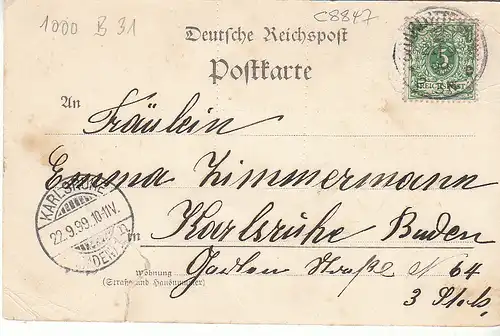 1000 B 31
C8847
Deutsche Reichspost
Postkarte
5
REICHSPOST
An
Fräulein
Emma Zimmermann
KARLSRUHE
22.9.99.10-11V.
in Karlsruhe Baden
Garten Straße N 64
Wohnung
(Straße und Hausnummer)
3 Stck.